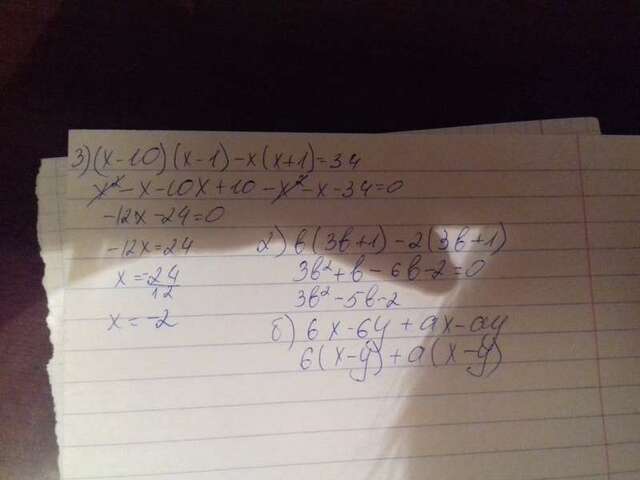 3)(x-10)(x-1)-x(x+1)=34
x²-x-10x+10-x²-x-34=0
-12x-24=0
-12x=24
x=-24/12
x=-2
2) b(3b+1)-2(3b+1)
3b²+b-6b-2=0
3b²-5b-2
б) 6x-6y+ax-ay
6(x-y)+a(x-y)